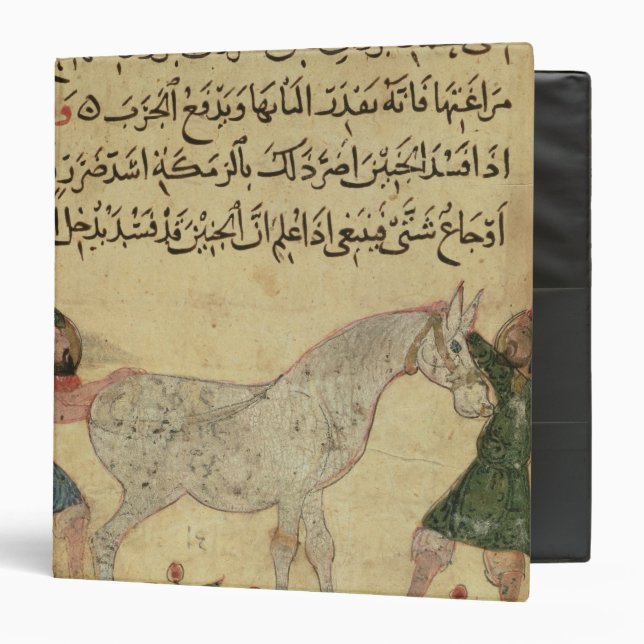 مراغتها فانه يقدر البانها ويدفع الجرب ٥ و
اذا فسد الجنين اضر ذلك بالرمكة اشد ضرر
اوجاع شتى فينبغى اذا علم ان الجنين قد فسد يدخل
١٤